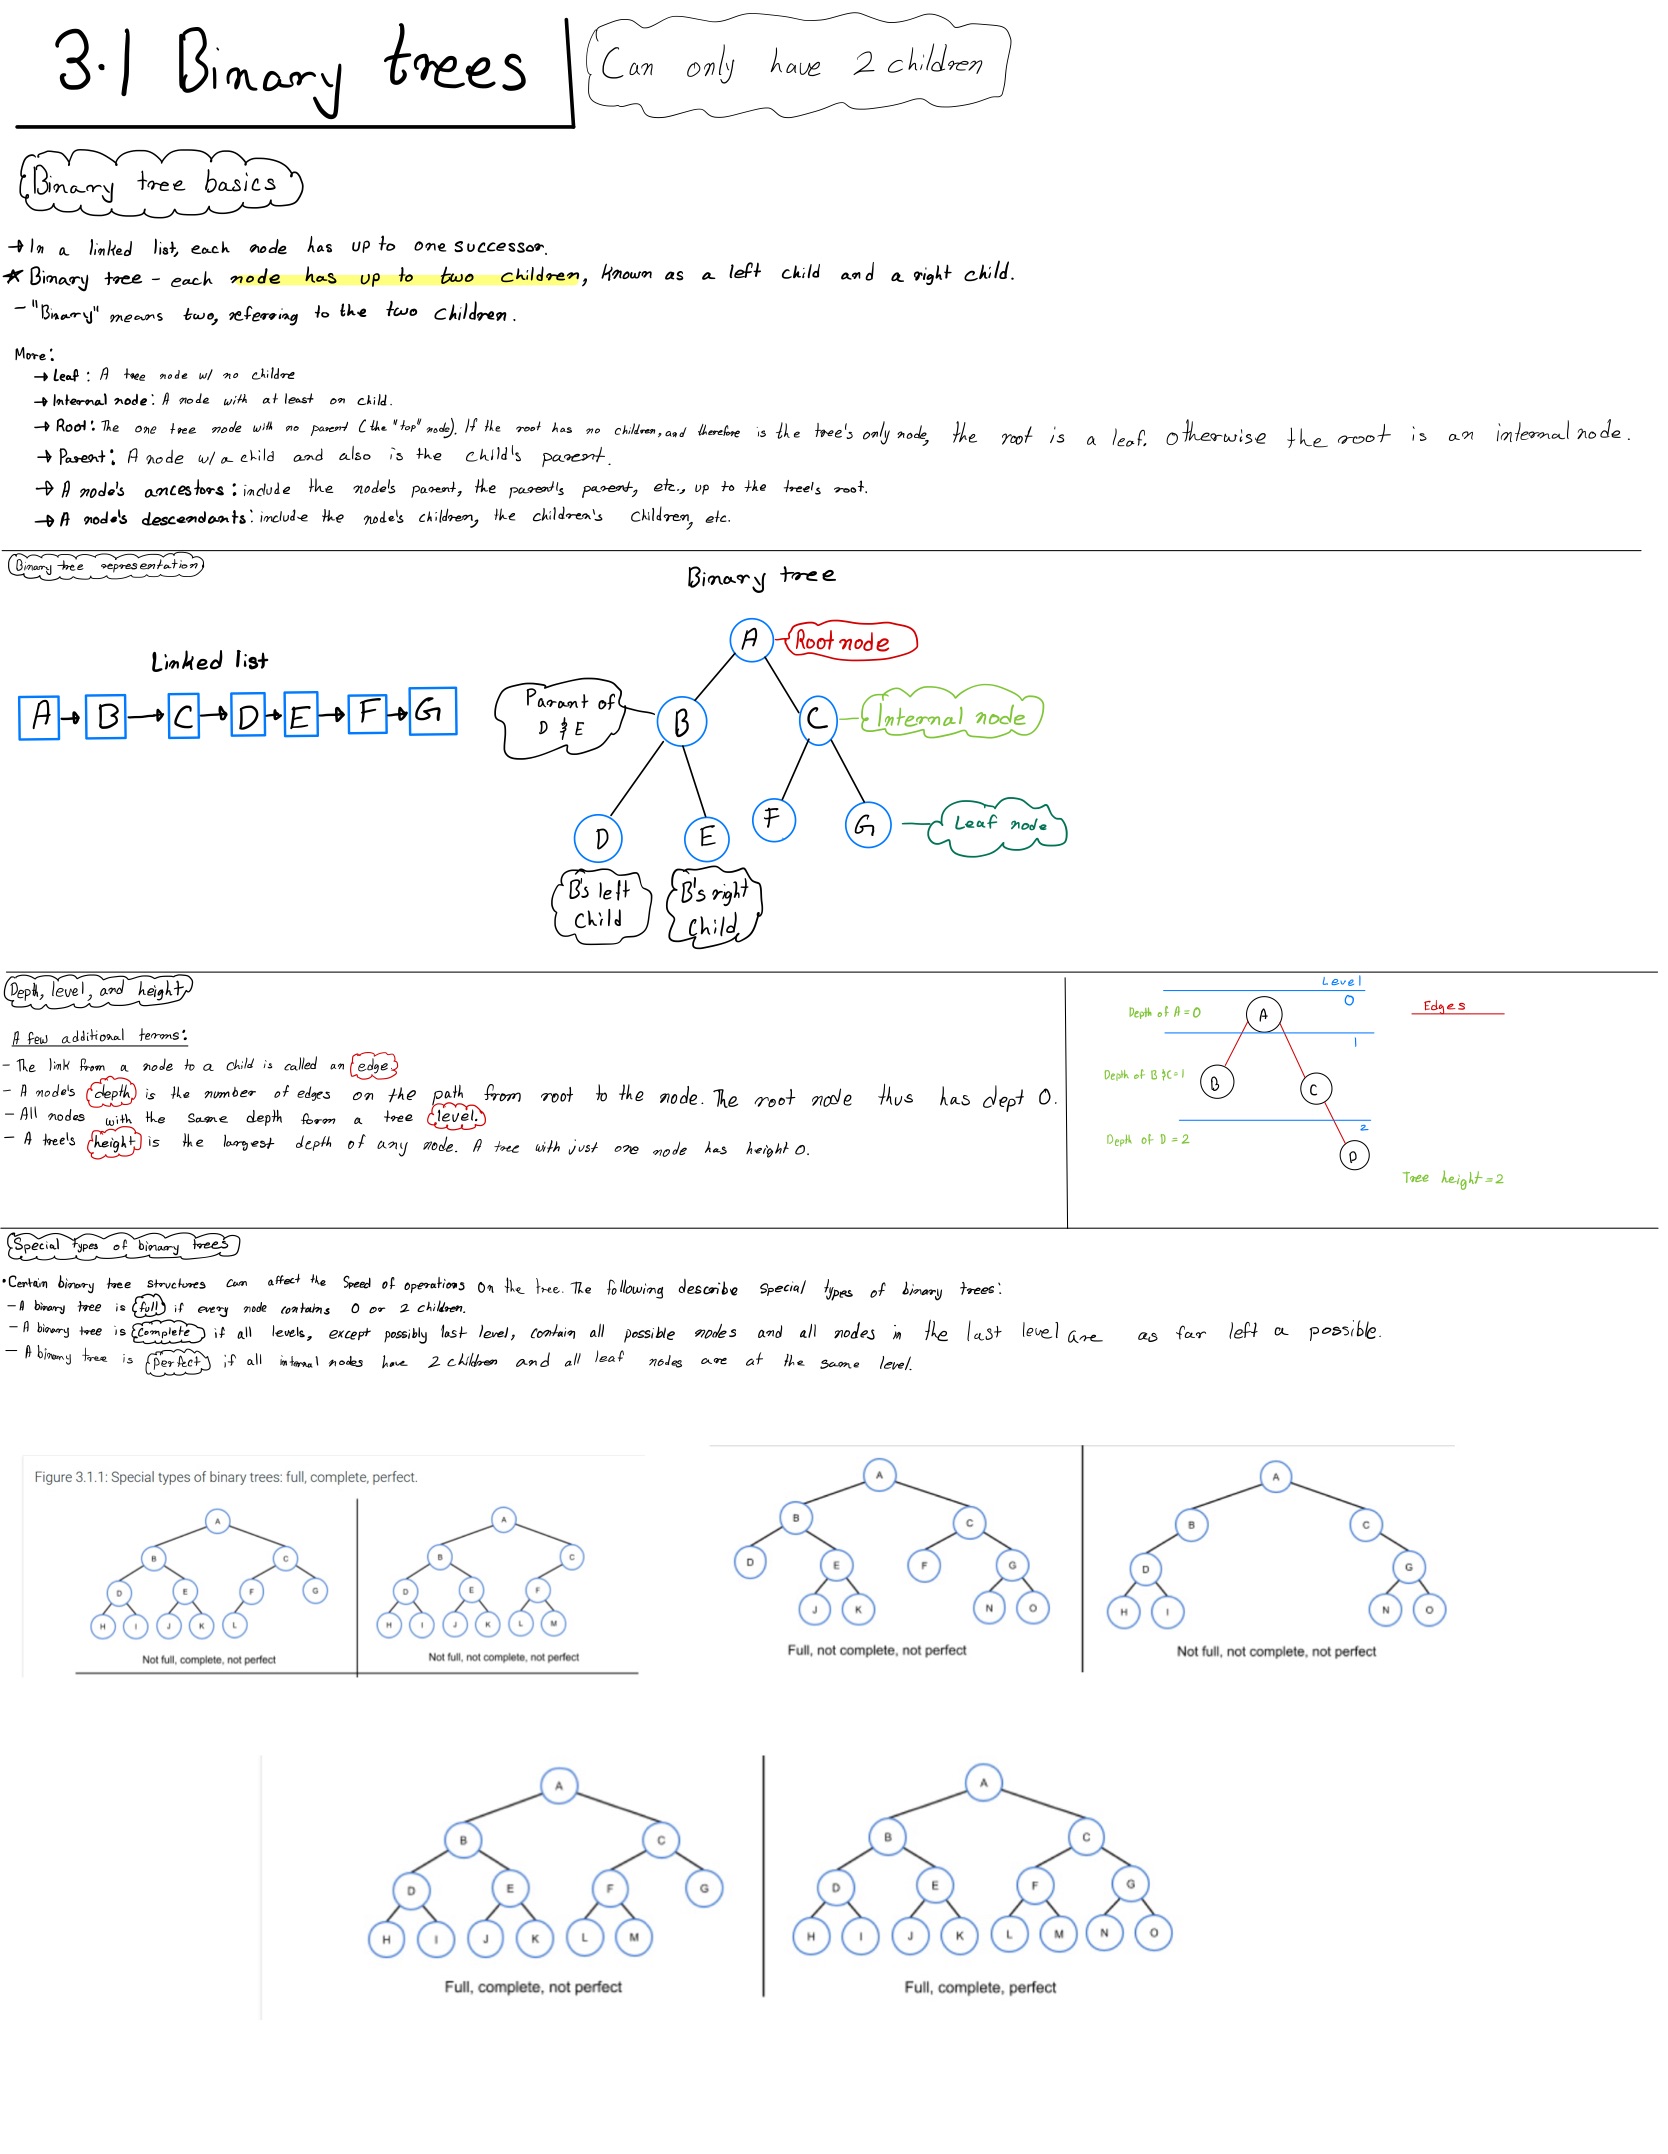 3.1 Binary trees
Can only have 2 children
Binary tree basics
→ In a linked list, each node has up to one successor.
★ Binary tree - each node has up to two children, known as a left child and a right child.
- "Binary" means two, referring to the two children.
More:
→ Leaf: A tree node w/ no childre
→ Internal node: A node with at least on child.
→ Root: The one tree node with no parent (the "top" node). If the root has no children, and therefore is the tree's only node, the root is a leaf. Otherwise the root is an internal node.
→ Parent: A node w/ a child and also is the child's parent.
→ A node's ancestors: include the node's parent, the parent's parent, etc., up to the tree's root.
→ A node's descendants: include the node's children, the children's children, etc.
Binary tree representation
Binary tree
Linked list
A → B → C → D → E → F → G
A
Root node
Parant of
D & E
B
C
Internal node
D
E
F
G
Leaf node
B's left
Child
B's right
Child
Depth, level, and height
A few additional terms:
- The link from a node to a child is called an edge.
- A node's depth is the number of edges on the path from root to the node. The root node thus has dept 0.
- All nodes with the same depth form a tree level.
- A tree's height is the largest depth of any node. A tree with just one node has height 0.
Level
0
Depth of A = 0
A
Edges
1
Depth of B & C = 1
B
C
2
Depth of D = 2
D
Tree height = 2
Special types of binary trees
• Certain binary tree structures can affect the speed of operations on the tree. The following describe special types of binary trees:
- A binary tree is full if every node contains 0 or 2 children.
- A binary tree is complete if all levels, except possibly last level, contain all possible nodes and all nodes in the last level are as far left a possible.
- A binary tree is perfect if all internal nodes have 2 children and all leaf nodes are at the same level.
Figure 3.1.1: Special types of binary trees: full, complete, perfect.
A
B C
D E F G
H I J K L
Not full, complete, not perfect
A
B C
D E F
H I J K L M
Not full, not complete, not perfect
A
B C
D E F G
J K N O
Full, not complete, not perfect
A
B C
D G
H I N O
Not full, not complete, not perfect
A
B C
D E F G
H I J K L M
Full, complete, not perfect
A
B C
D E F G
H I J K L M N O
Full, complete, perfect